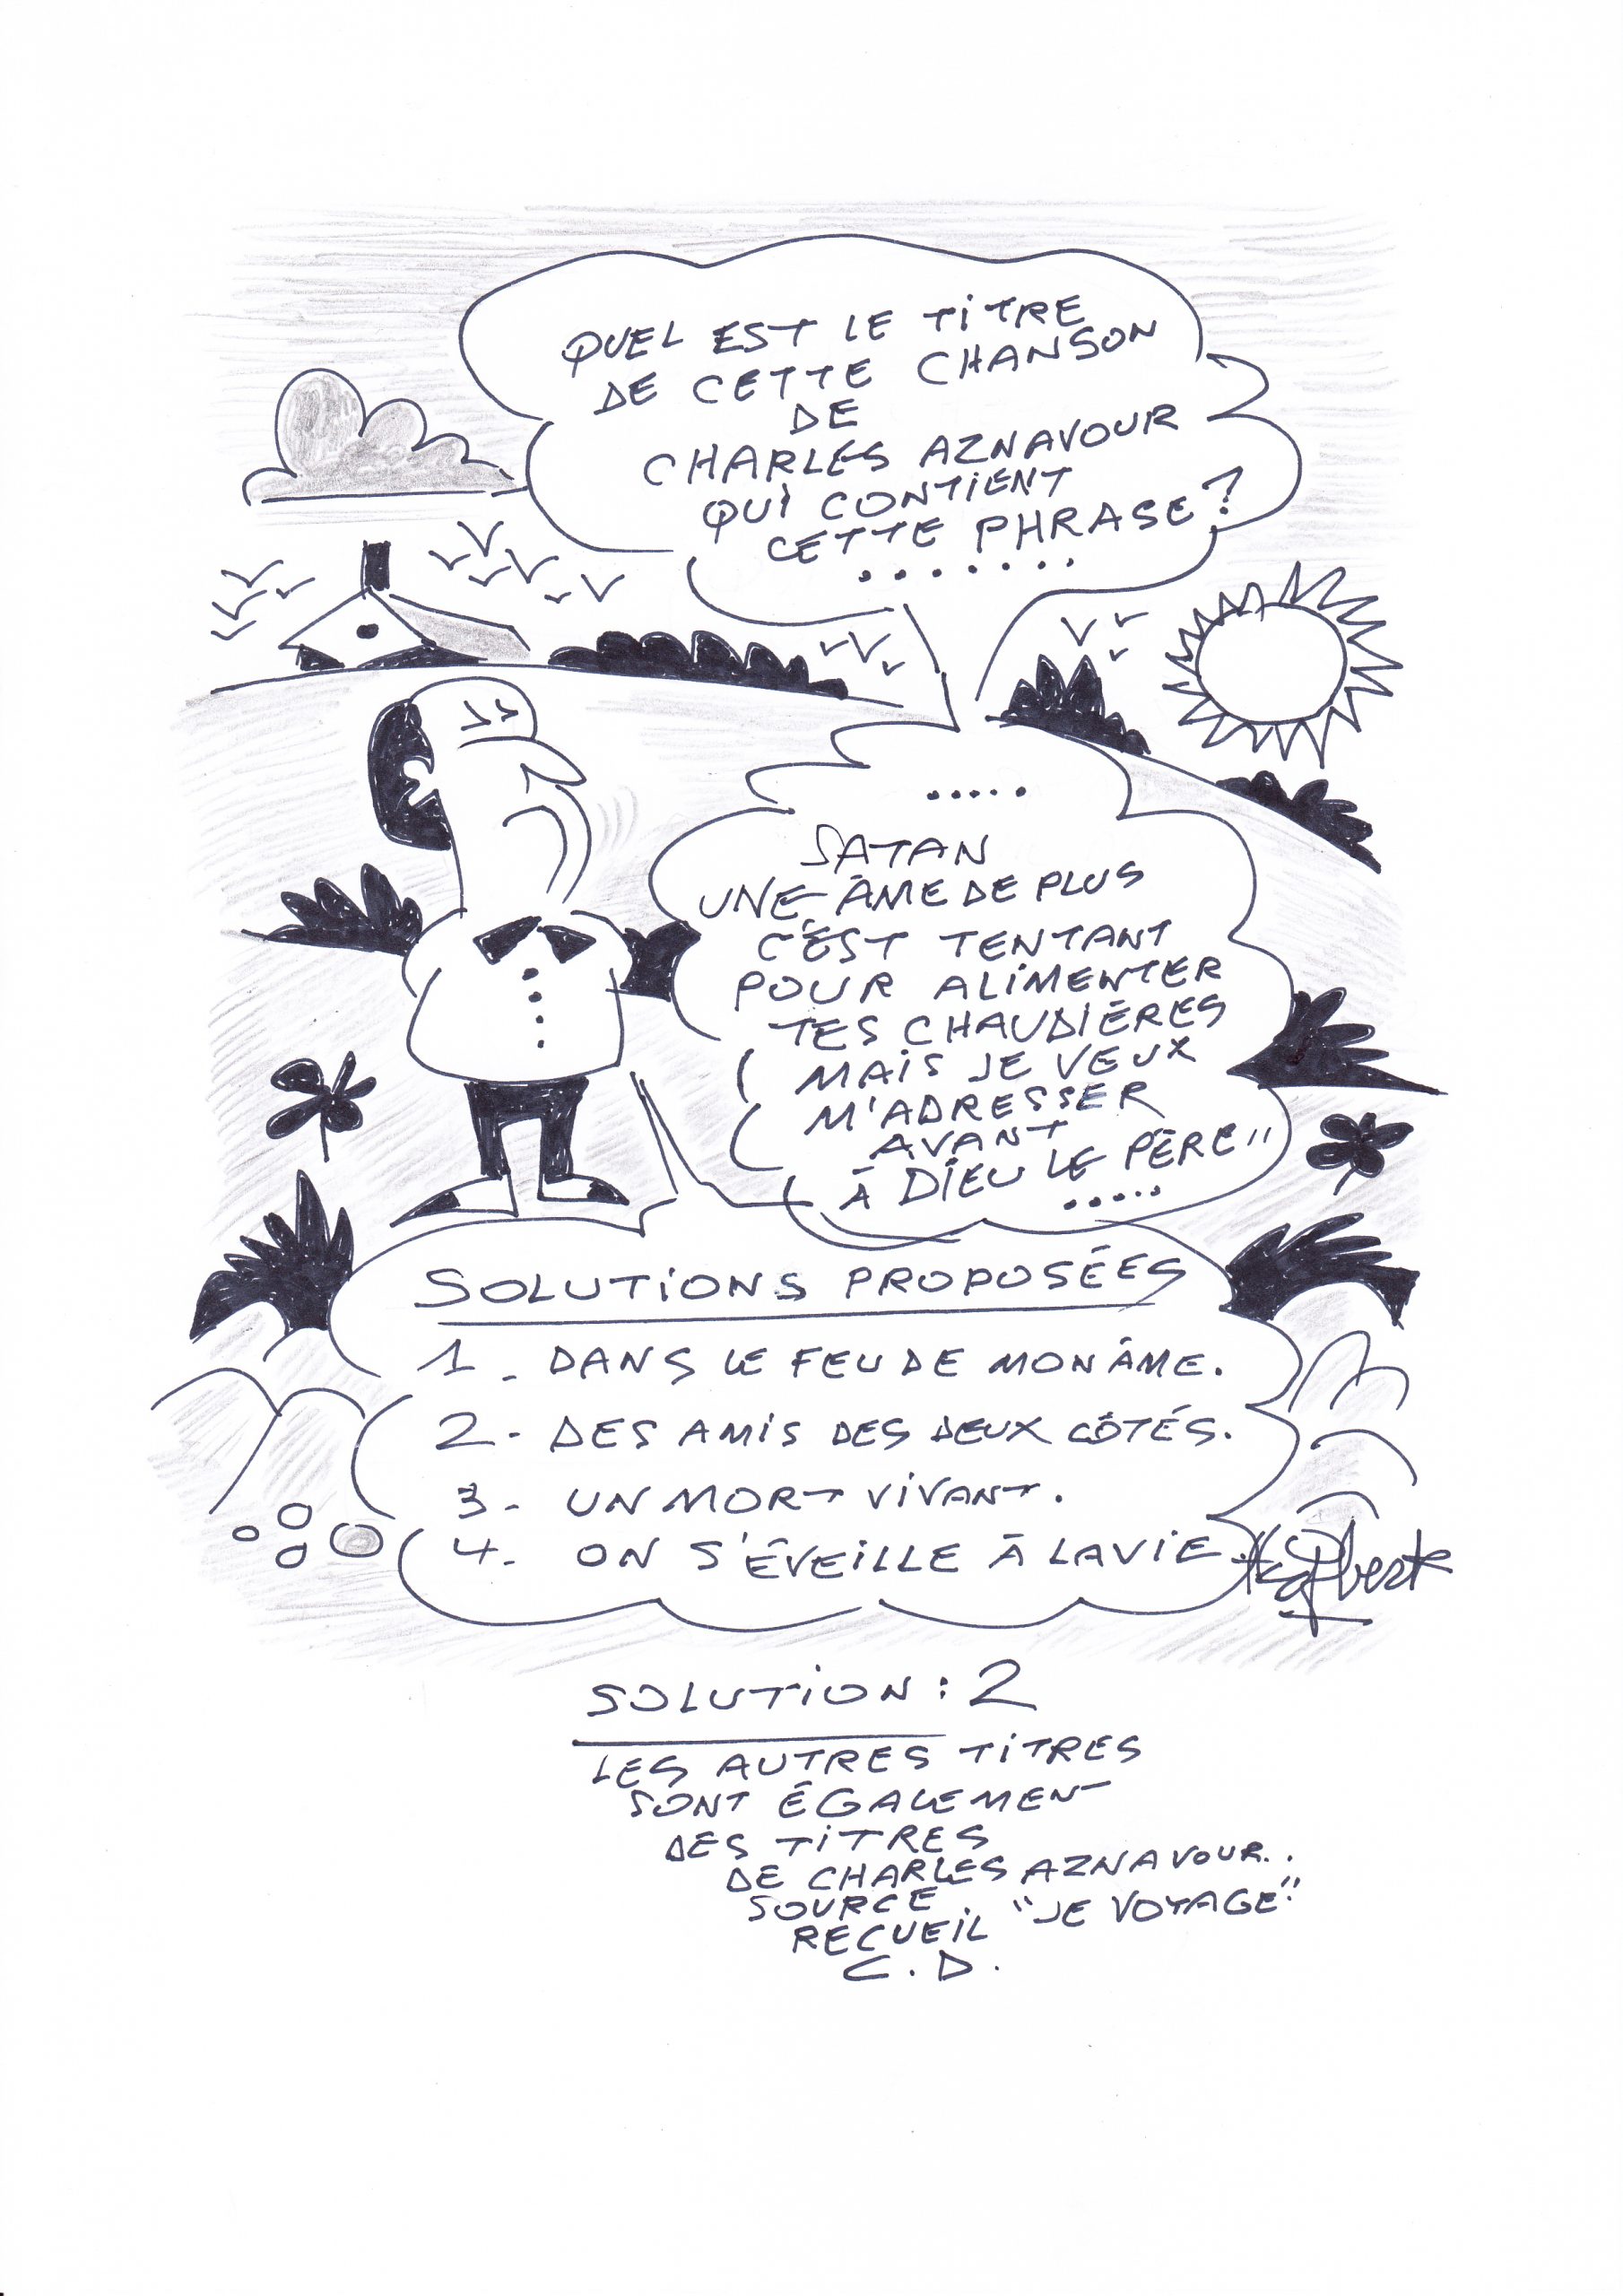 QUEL EST LE TITRE
DE CETTE CHANSON
DE
CHARLES AZNAVOUR
QUI CONTIENT
CETTE PHRASE ?
.......
.....
SATAN
UNE ÂME DE PLUS
C'EST TENTANT
POUR ALIMENTER
TES CHAUDIÈRES
MAIS JE VEUX
M'ADRESSER
AVANT
À DIEU LE PÈRE"
.....
SOLUTIONS PROPOSÉES
1_ DANS LE FEU DE MON ÂME.
2- DES AMIS DES DEUX CÔTÉS.
3- UN MORT VIVANT.
4- ON S'ÉVEILLE À LA VIE.
SOLUTION : 2
LES AUTRES TITRES
SONT ÉGALEMENT
DES TITRES
DE CHARLES AZNAVOUR..
SOURCE
RECUEIL "JE VOYAGE"
C.D.